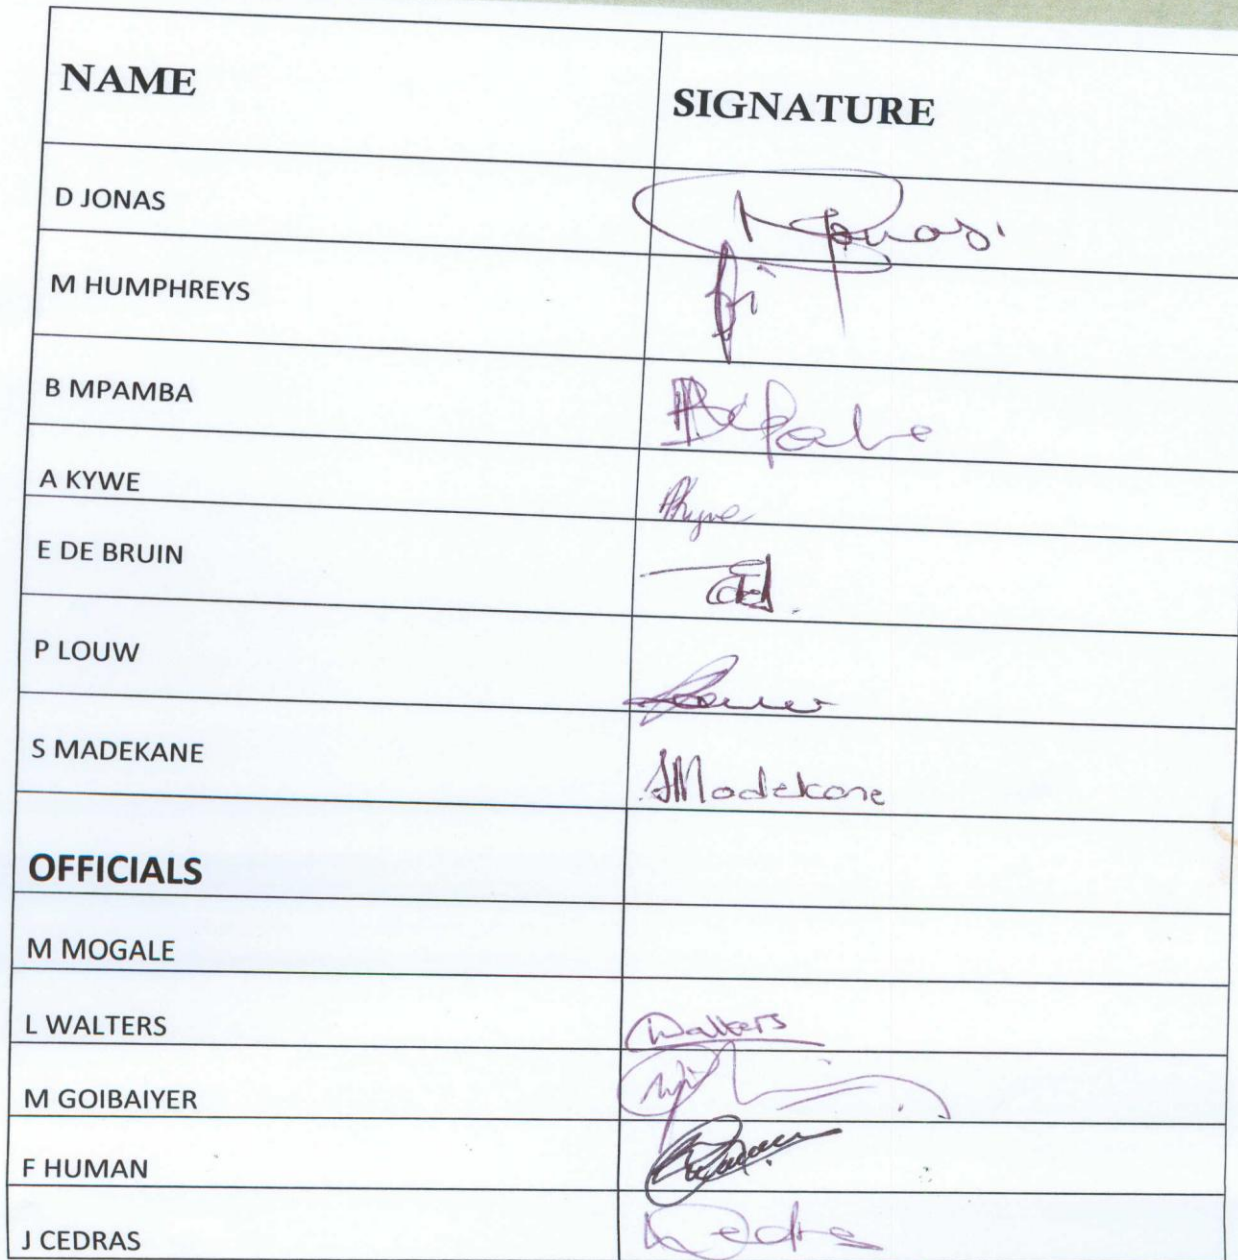 NAME SIGNATURE
D JONAS
M HUMPHREYS
B MPAMBA
A KYWE
E DE BRUIN
P LOUW
S MADEKANE SMadekane
OFFICIALS
M MOGALE
L WALTERS Walters
M GOIBAIYER
F HUMAN
J CEDRAS